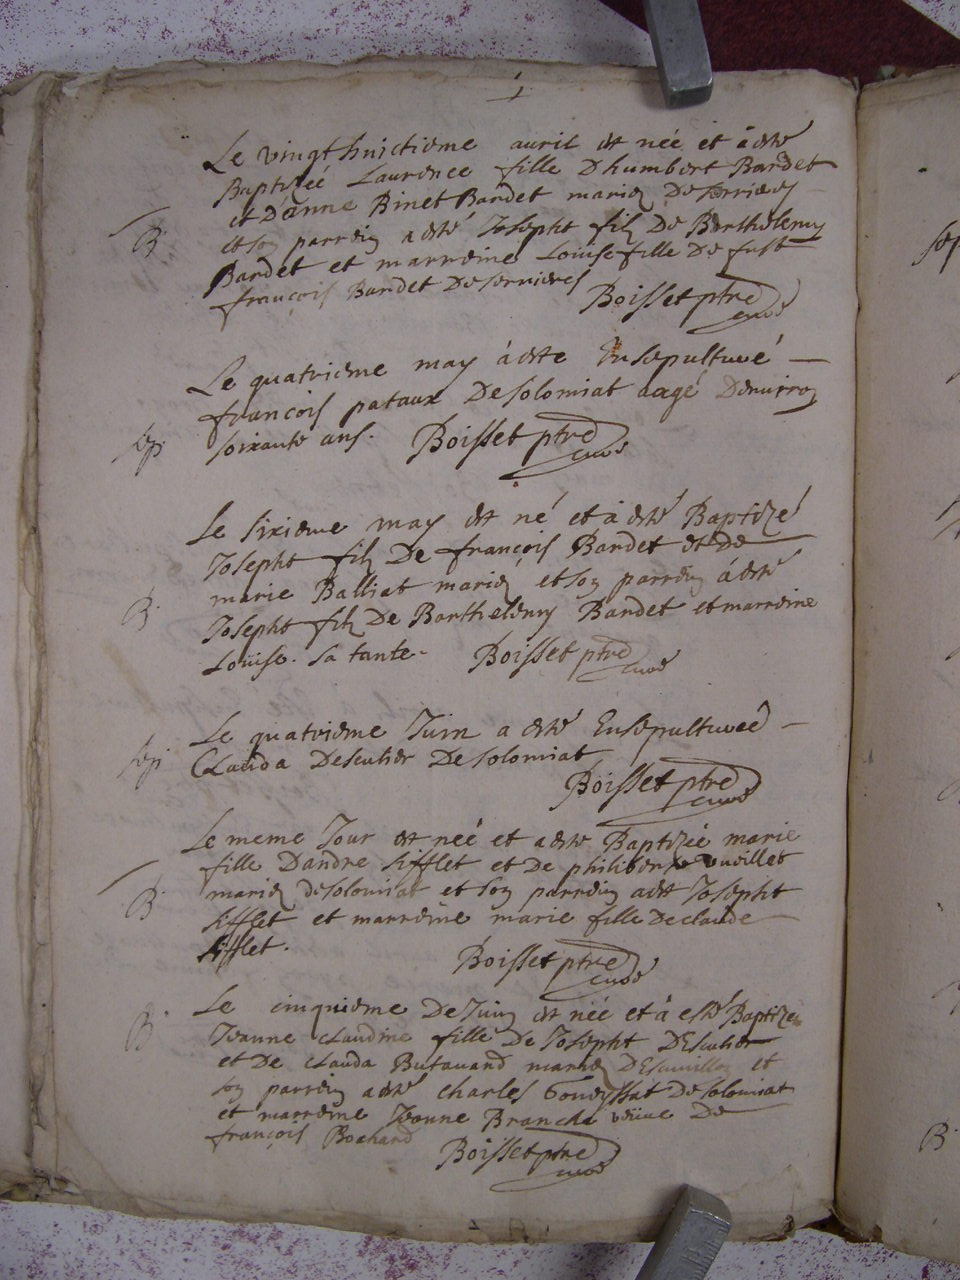 Le vingt huictieme avril est née et à esté
Baptizéé Laurence fille D humbert Bardet
et D'anne Binet Bardet mariez De serrieres
B.
et son parrein a esté Josepht filz De Barthelemy
Bardet et marreine Louise fille De fust
françois Bardet De serrieres
Boisset ptre
curé
Le quatrieme may à este Ensepulturé
francois pataux De solomiat aagé Denviron
sep.
soixante ans. Boisset ptre
curé
Le sixieme may est né et à esté Baptizé
Josepht filz De françois Bardet et De
marie Balliat mariez et son parrein á esté
B.
Josepht filz De Barthelemy Bardet et marreine
Louise. sa tante. Boisset ptre
curé
Le quatrieme Juin a esté Ensepulturéé
sep.
Clauda Desculier De solomiat
Boisset ptre
curé
Le meme Jour est néé et a esté Baptizéé marie
fille D'andre sifflet et De philiberte
B.
mariez de solomiat et son parrein a est Josepht
sifflet et marreine marie fille De claude
sifflet.
Boisset ptre
curé
Le cinquieme De Juin est néé et à esté Baptizéé
B.
Jeanne claudine fille De Josepht Desculier
et De clauda Butavand mariez et
son parrein a esté charles De solomiat
et marreine Jeanne Branche veuve De
françois Bochard
Boisset ptre
curé